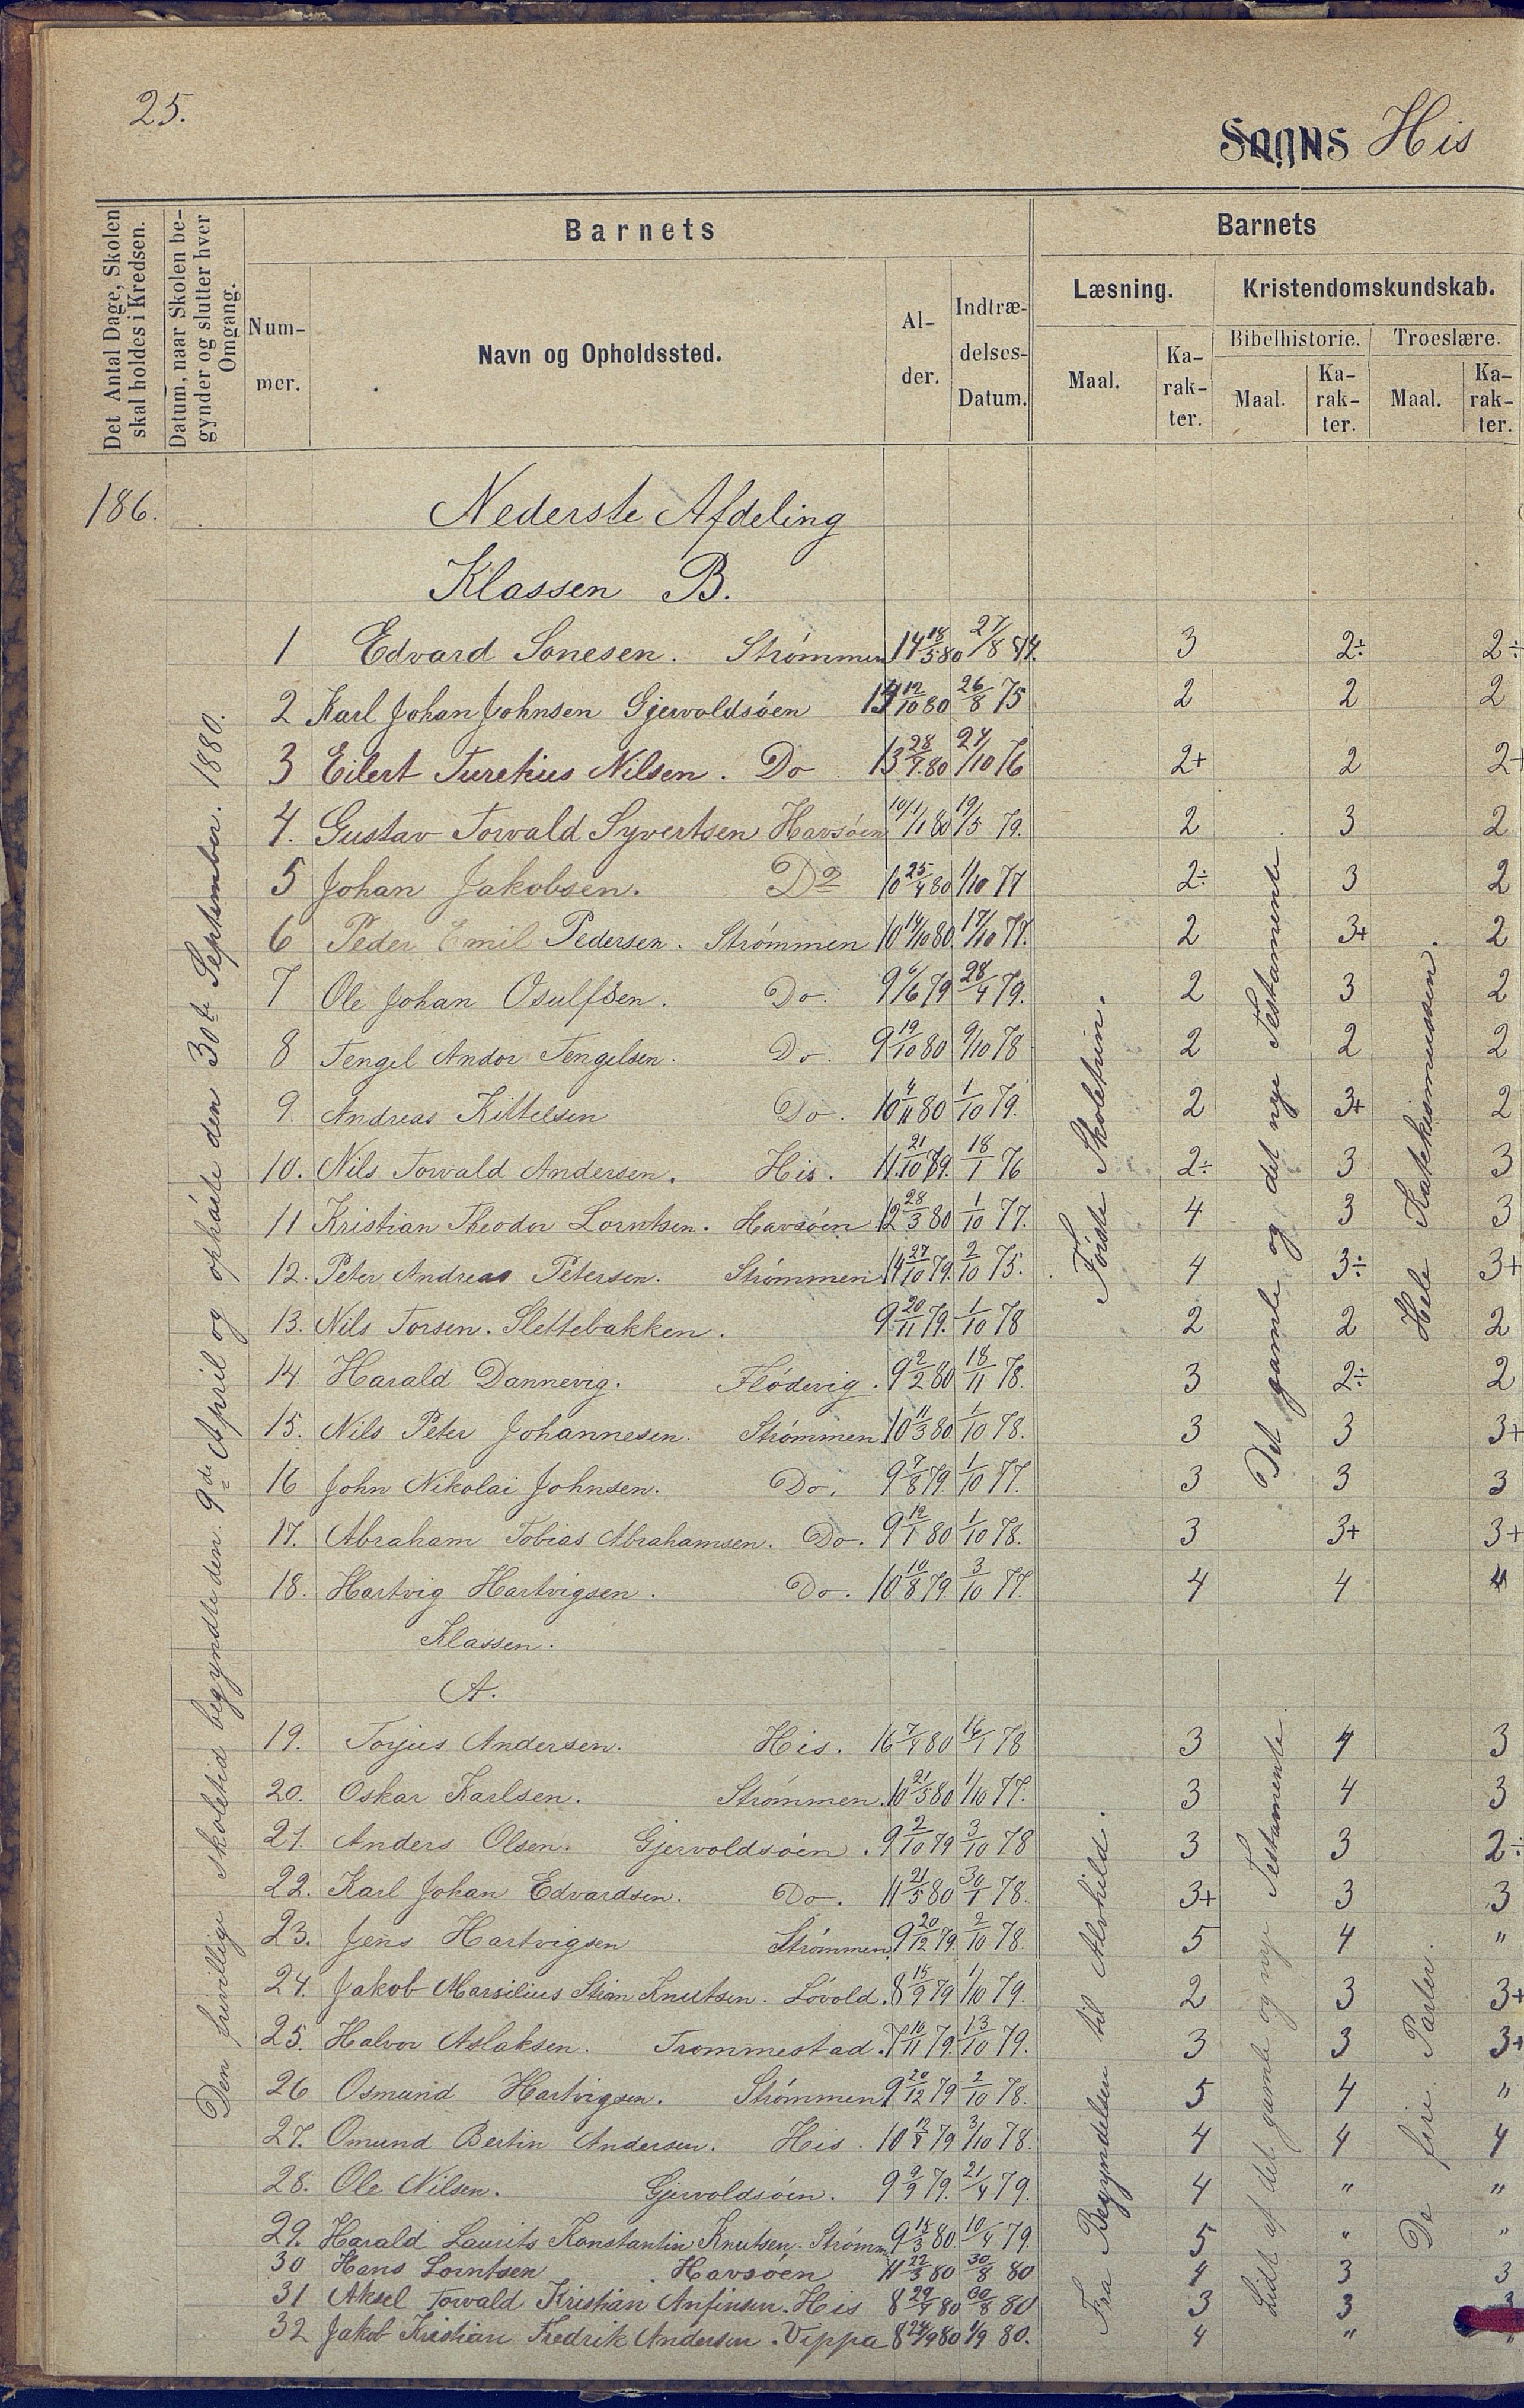 25.
Sogns His
Det Antal Dage, Skolen skal holdes i Kredsen.
Datum, naar Skolen begynder og slutter hver Omgang.
Barnets
Barnets
Nummer.
Navn og Opholdssted.
Alder.
Indtrædelses-Datum.
Læsning.
Kristendomskundskab.
Maal.
Karakter.
Bibelhistorie.
Troeslære.
Maal.
Karakter.
Maal.
Karakter.
186.
Nederste Afdeling
Klassen B.
Den frivillige skoletid begyndte den 9de April og ophørte den 30te September 1880.
Første Skoletrin.
Det gamle og det nye Testamente
Hele Katekismussen.
1 Edvard Sonesen. Strømmen 14 18/5 80 27/8 74. 3 2÷ 2÷
2 Karl Johan Johnsen Gjervoldsøen 12/10 80 26/8 75 2 2 2
3 Eilert Turekius Nilsen. Do 13 28/9.80 24/10 76 2+ 2 2+
4. Gustav Torvald Syvertsen Havsøen 10 1/11 80 19/5 79. 2 3 2
5 Johan Jakobsen. Do 10 25/4 80 1/10 77 2÷ 3 2
6 Peder Emil Pedersen. Strømmen 10 14/10 80. 17/10 77. 2 3+ 2
7 Ole Johan Osulfsen. Do. 9 6/6 79 28/4 79. 2 3 2
8 Tengel Andor Tengelsen. Do. 9 19/10 80 9/10 78 2 2 2
9. Andreas Kittelsen Do. 10 4/11 80 1/10 79. 2 3+ 2
10. Nils Torvald Andersen. His. 11 21/10 79. 18/1 76 2÷ 3 3
11 Kristian Theodor Lorntsen. Havsøen 12 28/3 80 1/10 77. 4 3 3
12. Peter Andreas Petersen. Strømmen 14 27/10 79. 2/10 75. 4 3÷ 3+
13. Nils Torsen. Slettebakken. 9 20/11 79. 1/10 78 2 2 2
14. Harald Dannevig. Flødevig. 9 2/2 80 18/11 78. 3 2÷ 2
15. Nils Peter Johannesen. Strømmen 10 11/3 80 1/10 78. 3 3 3+
16 John Nikolai Johnsen. Do. 9 7/8 79. 1/10 77. 3 3 3
17. Abraham Tobias Abrahamsen. Do. 9 12/1 80 1/10 78. 3 3+ 3+
18. Hartvig Hartvigsen. Do. 10 10/8 79. 3/10 77. 4 4 4
Klassen.
A.
Fra Begyndelsen til Alvhild.
Lidt af det gamle og nye Testamente.
De fire Parter.
19. Torjus Andersen. His. 16 7/4 80 16/1 78 3 4 3
20. Oskar Karlsen. Strømmen. 10 21/5 80 1/10 77. 3 4 3
21. Anders Olsen. Gjervoldsøen. 9 2/10 79 3/10 78 3 3 2÷
22. Karl Johan Edvardsen. Do. 11 21/5 80 30/1 78. 3+ 3 3
23. Jens Hartvigsen Strømmen. 9 20/12 79. 2/10 78. 5 4 "
24. Jakob Marsilius Stian Knutsen. Løvold. 8 15/9 79 1/10 79. 2 3 3+
25. Halvor Aslaksen. Trommestad. 7 10/11 79. 13/10 79. 3 3 3+
26 Osmund Hartvigsen. Strømmen 9 20/12 79 2/10 78. 5 4 "
27. Omund Bertin Andersen. His. 10 79 3/10 78. 4 4 4
28. Ole Nilsen. Gjervoldsøen. 9 9/9 79. 21/4 79. 4 " "
29. Harald Laurits Konstantin Knutsen. Strømm. 9 15/3 80. 10/4 79. 5 " "
30 Hans Lorntsen Havsøen 11 22/3 80 30/8 80 4 3 3
31 Aksel Torvald Kristian Anfinsen. His 8 29/4 80 30/8 80 3 3 3
32 Jakob Kristian Fredrik Andersen. Vippa 8 24/9 80 1/9 80. 4 " "